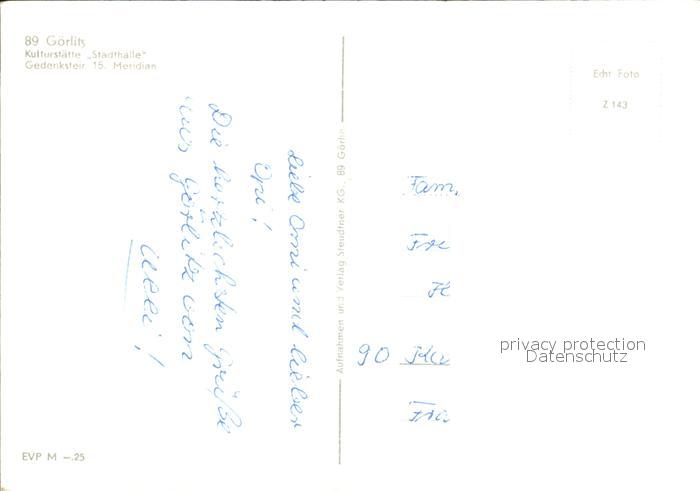 89 Görlitz
Kulturstätte „Stadthalle"
Gedenkstein 15. Meridian
Echt Foto
Z 143
Liebe Omi und lieber
Opi!
Die herzlichsten Grüße
aus Görlitz von
Aufnahmen und Verlag Steudtner KG., 89 Görlitz
Fam.
90
privacy protection
Datenschutz
EVP M –.25